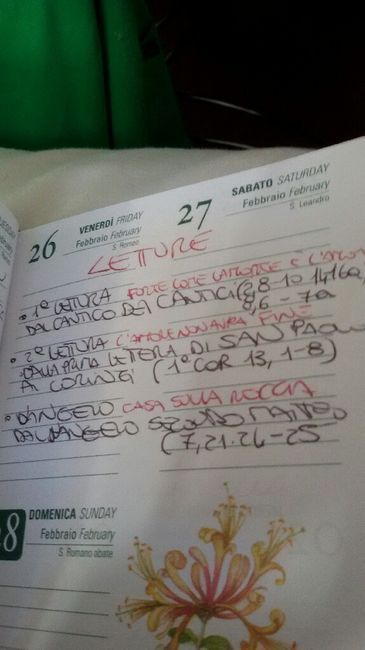 26 VENERDÌ FRIDAY
Febbraio February
S. Romeo
27 SABATO SATURDAY
Febbraio February
S. Leandro
LETTURE
• 1° LETTURA FORTE COME LA MORTE È L'AMORE
DAL CANTICO DEI CANTICI (2,8-10 14.16a,
8,6-7a
• 2° LETTURA L'AMORE NON AVRÀ FINE
DALLA PRIMA LETTERA DI SAN PAOLO
AI CORINZI (1° COR 13, 1-8)
• VANGELO CASA SULLA ROCCIA
DAL VANGELO SECONDO MATTEO
(7,21.24-25
8 DOMENICA SUNDAY
Febbraio February
S. Romano abate